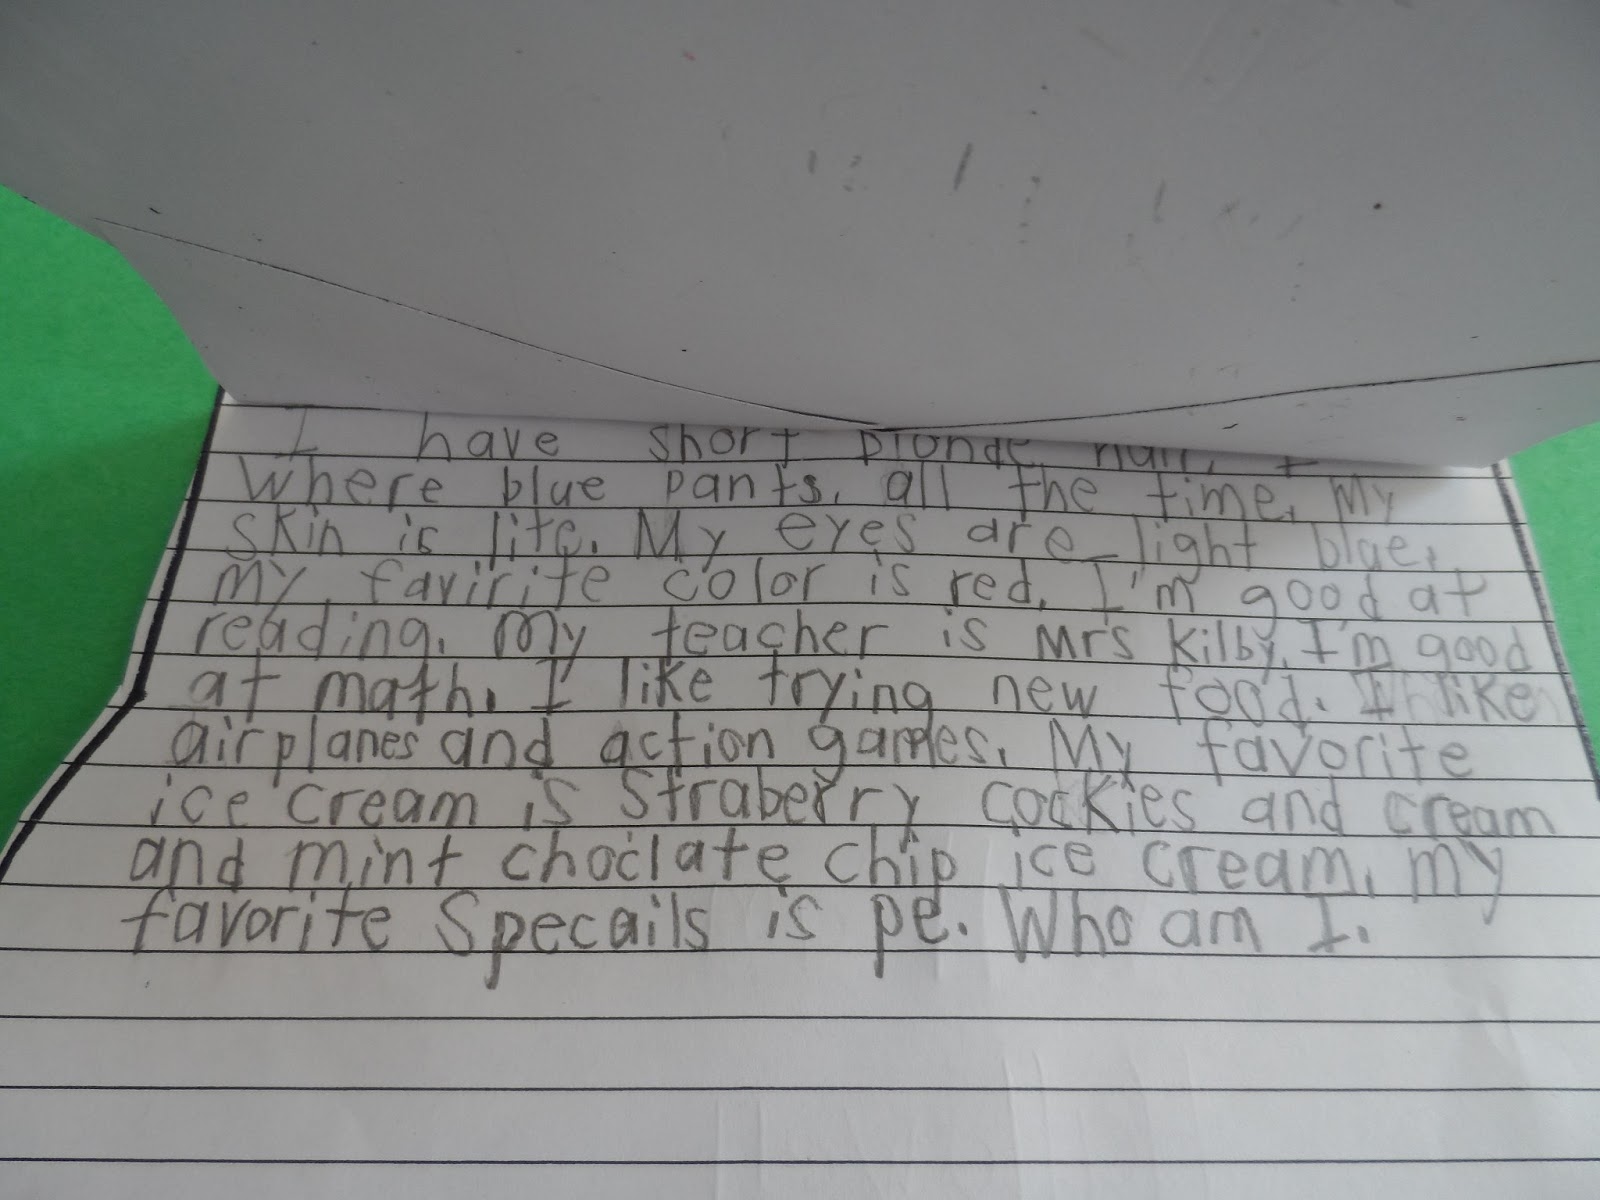 I have short blonde hair. I
Where blue pants. all the time. My
skin is lite. My eyes are light blue.
my favirite color is red. I'm good at
reading. my teacher is Mrs Kilby. I'm good
at math. I like trying new food. I like
airplanes and action games. My favorite
ice cream is Straberry cookies and cream
and mint choclate chip ice cream. my
favorite Specails is pe. Who am I.